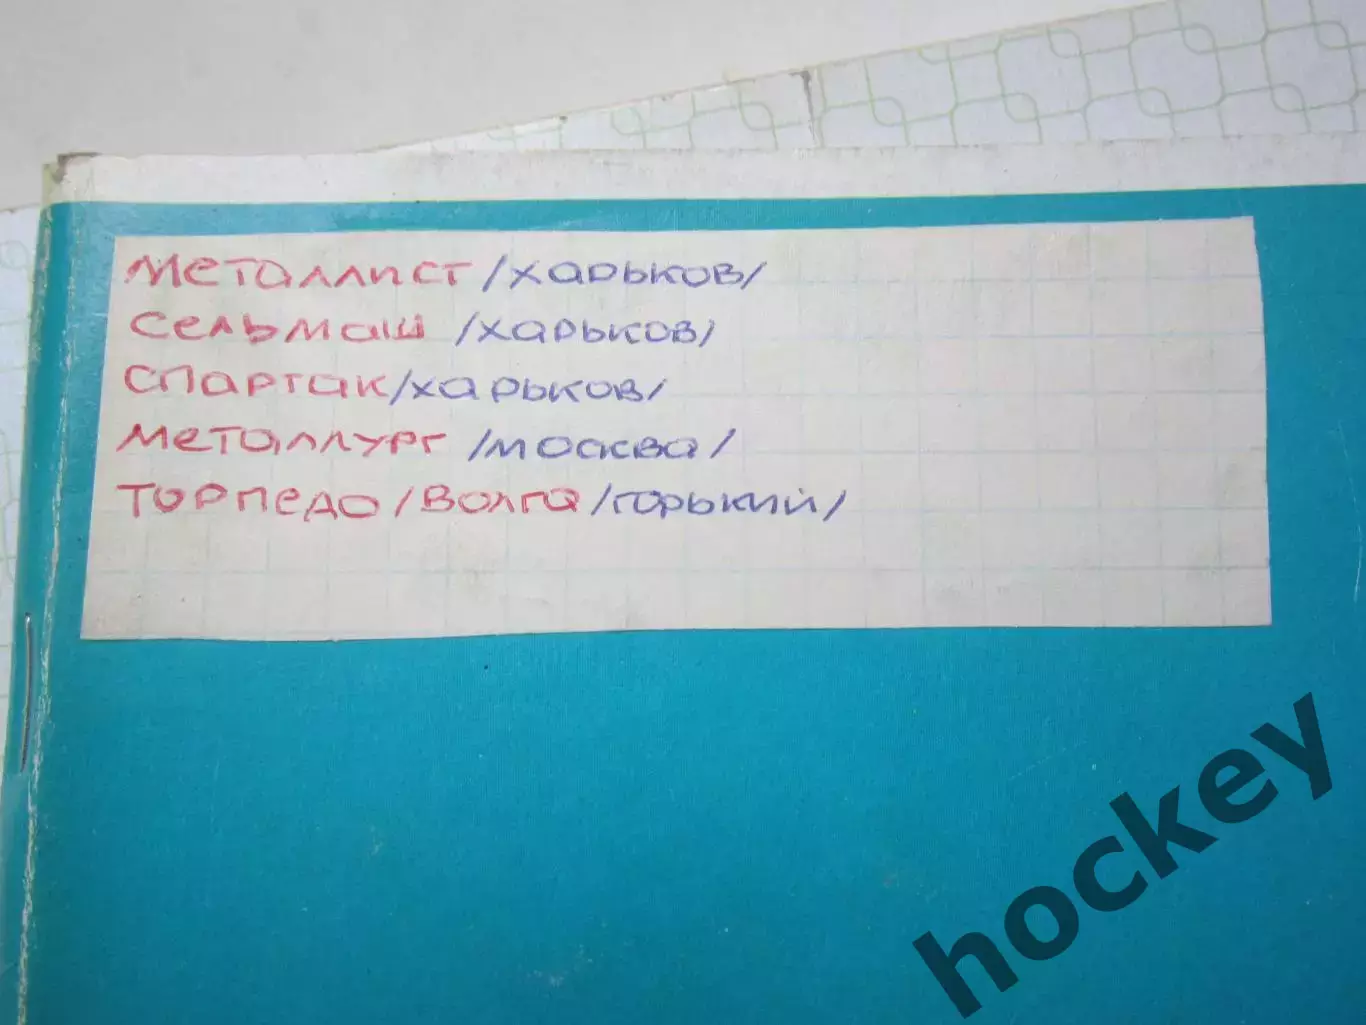 Металлист /Харьков/
Сельмаш /Харьков/
Спартак /Харьков/
Металлург /Москва/
Торпедо /Волга /Горький/
hockey